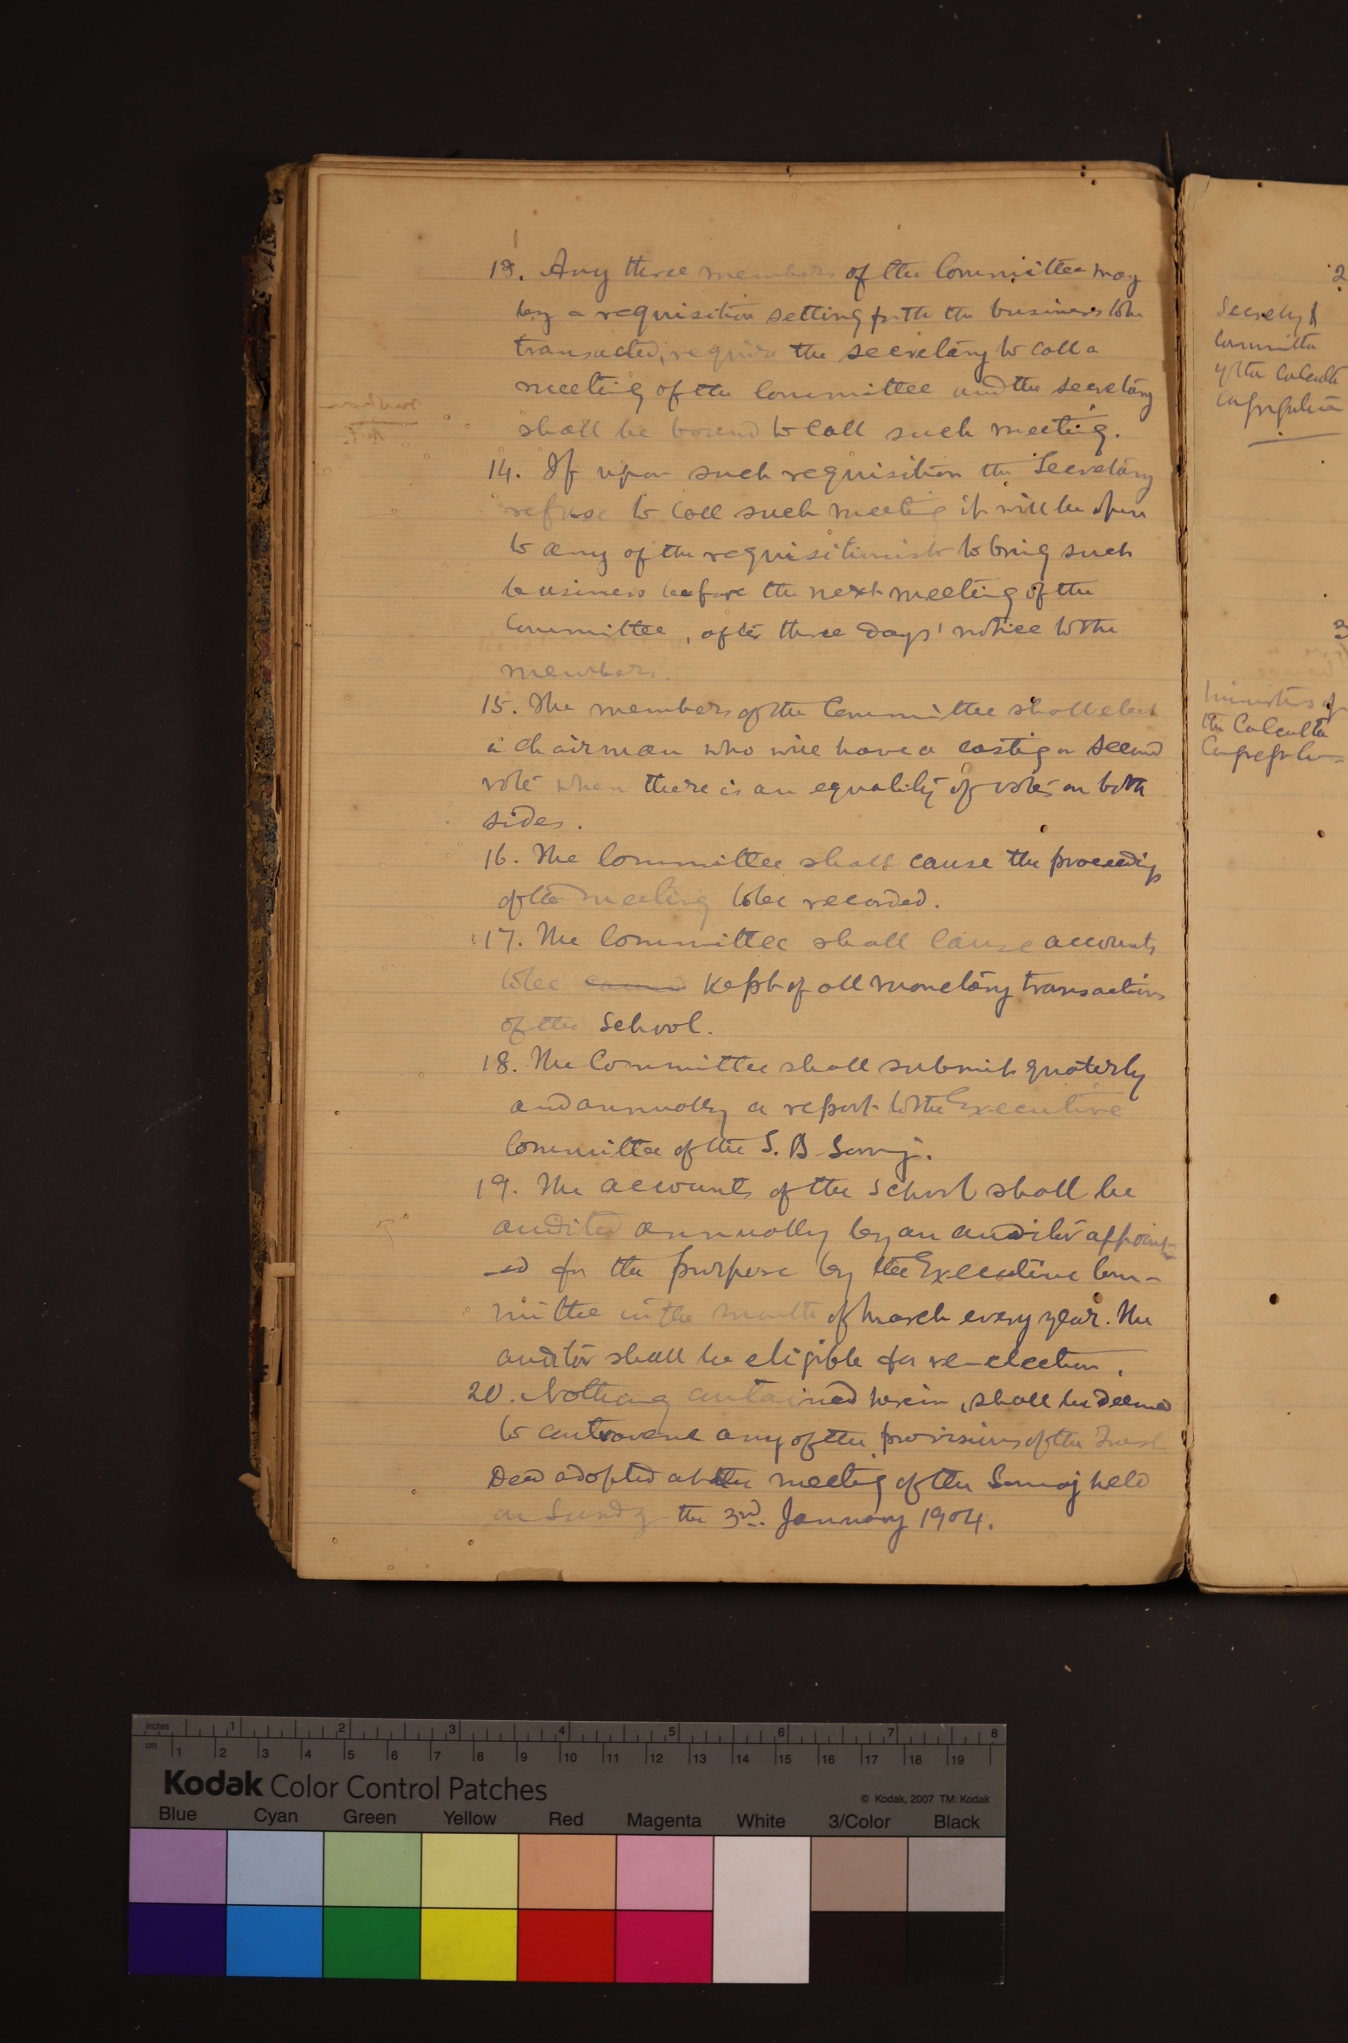 13. Any three members of the Committee may
by a requisition setting forth the business to be
transacted, require the secretary to call a
meeting of the Committee and the secretary
shall be bound to call such meeting.
14. If upon such requisition the Secretary
refuse to call such meeting it will be open
to any of the requisitionists to bring such
business before the next meeting of the
Committee, after three days' notice to the
members.
15. The members of the Committee shall elect
a chairman who will have a casting or second
vote when there is an equality of votes on both
sides.
16. The Committee shall cause the proceedings
of the meeting to be recorded.
17. The Committee shall cause accounts
to be kept of all monetary transactions
of the School.
18. The Committee shall submit quaterly
and annually a report to the Executive
Committee of the S. B Samaj.
19. The accounts of the School shall be
audited annually by an auditor appoint-
-ed for the purpose by the Executive Com-
mittee in the month of March every year. The
auditor shall be eligible for re-election.
20. Nothing contained herein, shall be deemed
to contravene any of the provisions of the Trust
Deed adopted at the meeting of the Samaj held
on Sunday the 3rd. January 1904.
2
Secretary &
Committee
of the Calcutta
Congregation
3
Ministers of
the Calcutta
Congregation
inches 1 2 3 4 5 6 7 8
cm 1 2 3 4 5 6 7 8 9 10 11 12 13 14 15 16 17 18 19
Kodak Color Control Patches
© Kodak, 2007 TM: Kodak
Blue Cyan Green Yellow Red Magenta White 3/Color Black